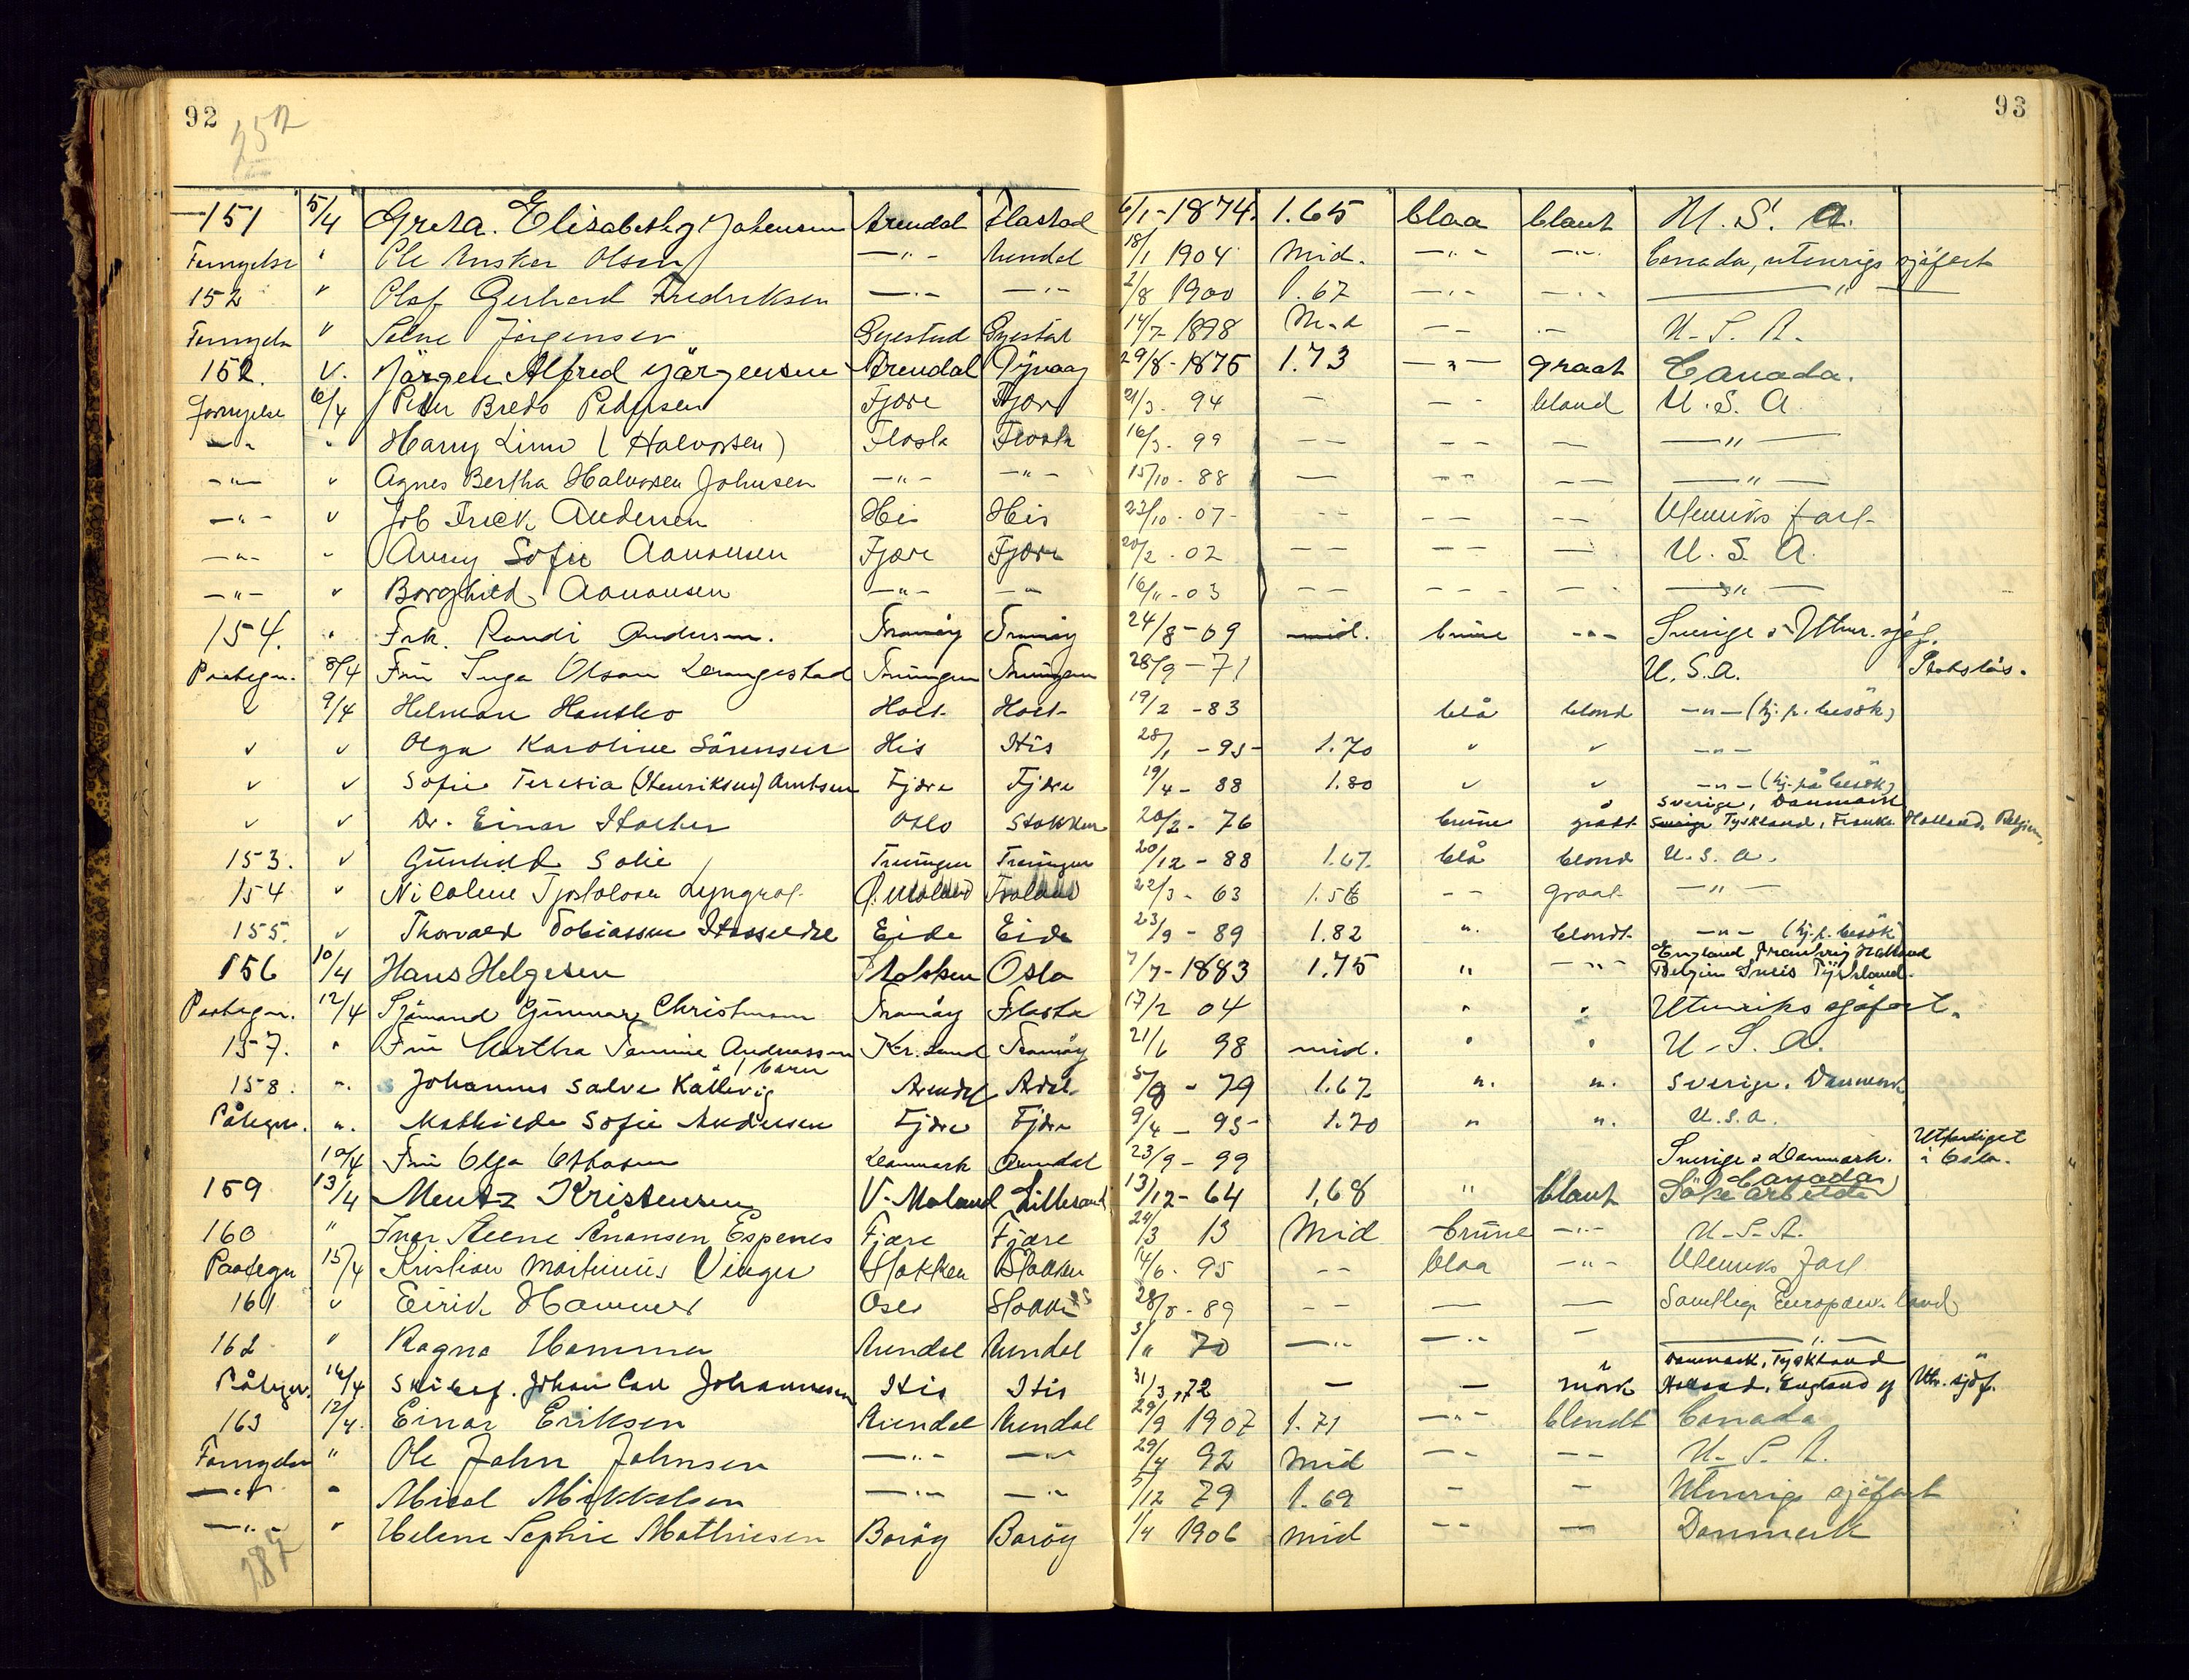 92
93
151 5/4 Greta. Elisabeth Johensen Arendal Flastad 6/1-1874. 1.65 blaa blant U. S. A.
Fornyelse " Ole Ansker Olsen —"— Arendal 18/1 1904 Mid. —"— —"— Canada, utenrigs sjøfart
152 " Olaf Gerhard Fredriksen —"— —"— 2/8 1900 1.67 —"— —"— —"—
Fornyelse " Selne Jörgensen Gjestad Gjestad 14/7 1898 Mid — — —"— U. S. A.
152. v. Jörgen Alfred Jörgensen Arendal Dÿvaag 29/8-1875 1.73 —"— graat Canada.
Fornyelse 6/4 Peder Bredo Pedersen Fjære Fjære 21/3. 94 — — — blond U. S. A.
—"— " Harry Linn (Halvorsen) Flosta Flosta 16/3. 99 — — — — — —"—
—"— v Agnes Bertha Halvorsen Johnsen —"— —"— 15/10 - 88 — — — — — —"—
—"— v Job Frick Andersen His His 23/10 - 07 — — — — — — Utenriks fart
—"— " Anny Sofie Aanonsen Fjære Fjære 20/2 - 02 — — — — — U. S. A.
—"— v Borghild Aanonsen —"— —"— 16/11 - 03 — — — — — —"—
154. " Frk. Randi Andersen. Tromöy Tromöy 24/8 - 09 mid. brune —"— Sverige & Utenr. sjøf.
Paategn. 8/4 Frü Inga Olsson Lerangestad Treüngen Treüngen 28/9 - 71 U. S. A. Statslös.
v 9/4 Helmar Hantho Holt Holt 19/2 - 83 blå blond —"— (hj. p. besök)
v v Olga Karoline Sörensen His His 28/1 - 95 1.70 v v —"—
v v Sofie Teresia (Henriksen) Arntsen Fjære Fjære 19/4 - 88 1.80 v v —"— (hj. på besök)
v v Dr. Einar Oslo Stokken 20/2 - 76 brune grått Sverige, Danmark Tyskland, Frankr. Holland, Belgien,
153. v Gunhild Solie Treungen Treungen 20/12 - 88 1.67. blå blond U. S. A.
154 v Nicoline Tjostolvsen Lyngrot Froland 22/3 - 63 1.56 — — graat —"—
155. v Thorvald Tobiassen Hesseldal Eide Eide 23/9 - 89 1.82 " blondt —"— (hj. p. besök)
156 10/4 Hans Helgesen Stokken Oslo 7/7-1883 1.75 " —"— England Frankrig Holland Belgien Sveis Tÿskland.
Paategn. 12/4 Sjömand Gunnar Christensen Tromöy Flosta 17/2 04 " " Utenriks sjøfart.
157. " Frü Martha Tomine Andreassen Kr.sand Tromöy 21/6 98 mid. " " U. S. A.
1 barn
158. ". Johannes Salve Kallevig Arendal Adal. 5/8 - 79 1.67 ". ". Sverige. Danmark
Påtegn. ". Mathilde Sofie Andersen Fjære Fjære 9/4 - 95 1.70 " ". U. S. A.
12/4 Frü Olga Danmark Arendal 23/9 - 99 Sverige & Danmark. Utferdiget i Oslo.
159 13/4 Mentz Kristensen V. Moland Lillesand 13/12-64 1,68 " blant Canada Söke arbeide
160 " Inar Steene Ånonsen Espenes Fjære Fjære 24/3 13 Mid brune —"— U. S. A.
Paategn 15/4 Kristian Martinius Vinger Stokken Stokken 14/6. 95 — — blaa —"— Utenriks fart
161 v Eirik Hammer Oslo Stokken 28/8 - 89 — — — — Samtlige Europæiske land
162 " Ragna Hammer Arendal Arendal 3/11 70 —"— —"— — —"—
Påtegn. 16/4 Skibsf. Johan Carl Johannesen His His 31/3, 72 — — mörk Danmark, Tyskland Holland, England og Utr. sjöf.
163 12/4. Einar Eriksen Arendal Arendal 29/9 1907 1.71 —"— blondt Canada
Fornyelse " Ole John Johnsen —"— —"— 29/4 92 Mid — — — — U. S. A.
—"— " Mikkelsen —"— —"— 7/12 79 1.69 — — Utenrigs sjøfart
—"— v Helene Sophie Mathiesen Baröy Baröy 1/4 1906 mid — — — Danmark